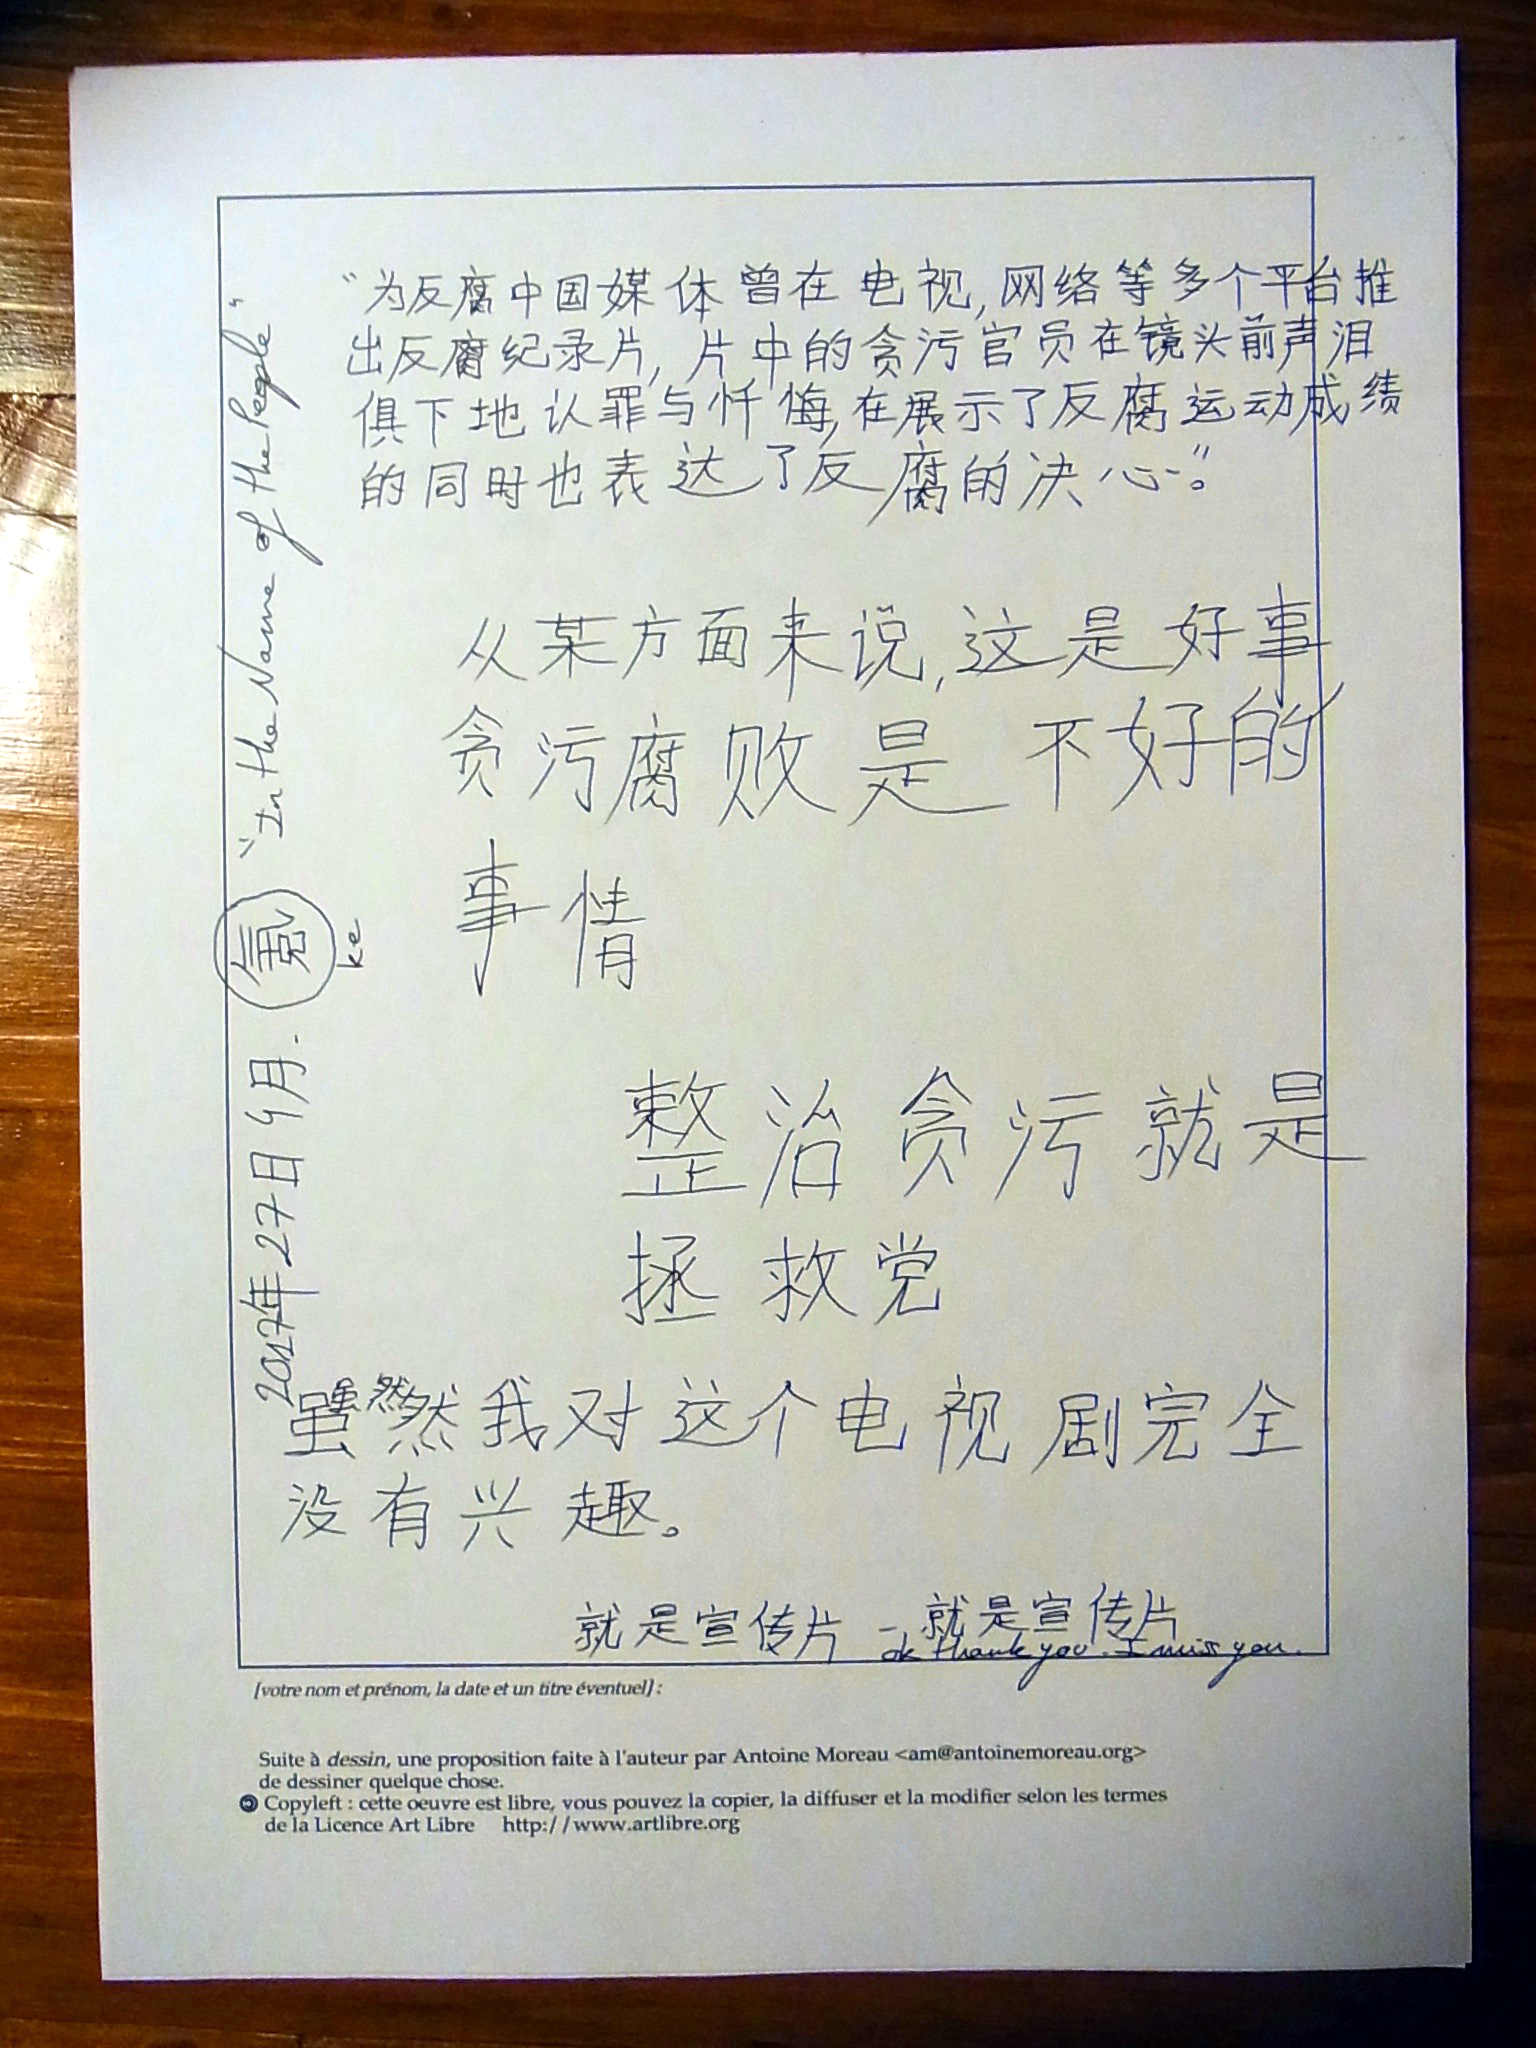 “为反腐中国媒体曾在电视,网络等多个平台推
出反腐纪录片,片中的贪污官员在镜头前声泪
俱下地认罪与忏悔,在展示了反腐运动成绩
的同时也表达了反腐的决心”。
从某方面来说,这是好事
贪污腐败是 不好的
事情
整治贪污就是
拯救党
虽然然我对这个电视剧完全
没有兴趣。
就是宣传片 – 就是宣传片
ok thank you. I miss you.
2017年27日4月. 氪 "In the Name of the People"
ke
[votre nom et prénom, la date et un titre éventuel] :
Suite à dessin, une proposition faite à l'auteur par Antoine Moreau <am@antoinemoreau.org>
de dessiner quelque chose.
Copyleft : cette oeuvre est libre, vous pouvez la copier, la diffuser et la modifier selon les termes
de la Licence Art Libre http://www.artlibre.org